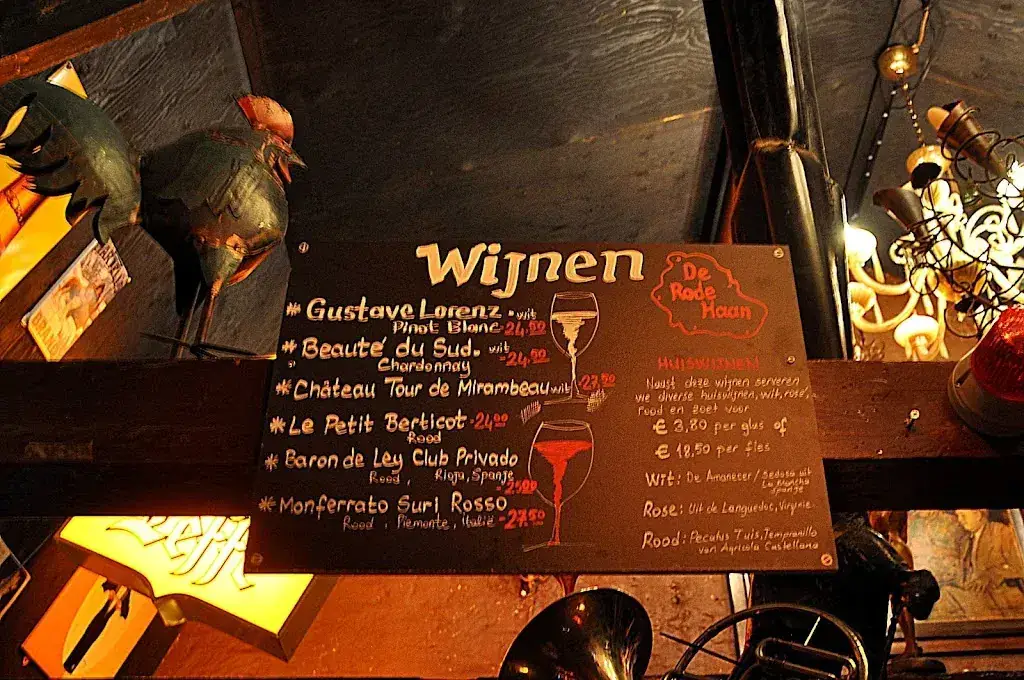 Wijnen
* Gustave Lorenz • wit
Pinot Blanc - 24,50
* Beauté du Sud. wit
Chardonnay - 24,50
* Château Tour de Mirambeau wit - 27,50
* Le Petit Berticot - 24,00
Rood
* Baron de Ley Club Privado
Rood, Rioja, Spanje
- 25,00
* Monferrato Suri Rosso
Rood, Piemonte, Italië - 27,50
De
Rode
Haan
HUISWIJNEN
Naast deze wijnen serveren
we diverse huiswijnen, wit, rosé,
rood en zoet voor
€ 3,80 per glas of
€ 18,50 per fles
Wit: De Amanecer / Sedosa uit
La Mancha
Spanje
Rose: Uit de Languedoc, Virginie
Rood: Pecutus Tuis, Tempranillo
van Agricola Castellana